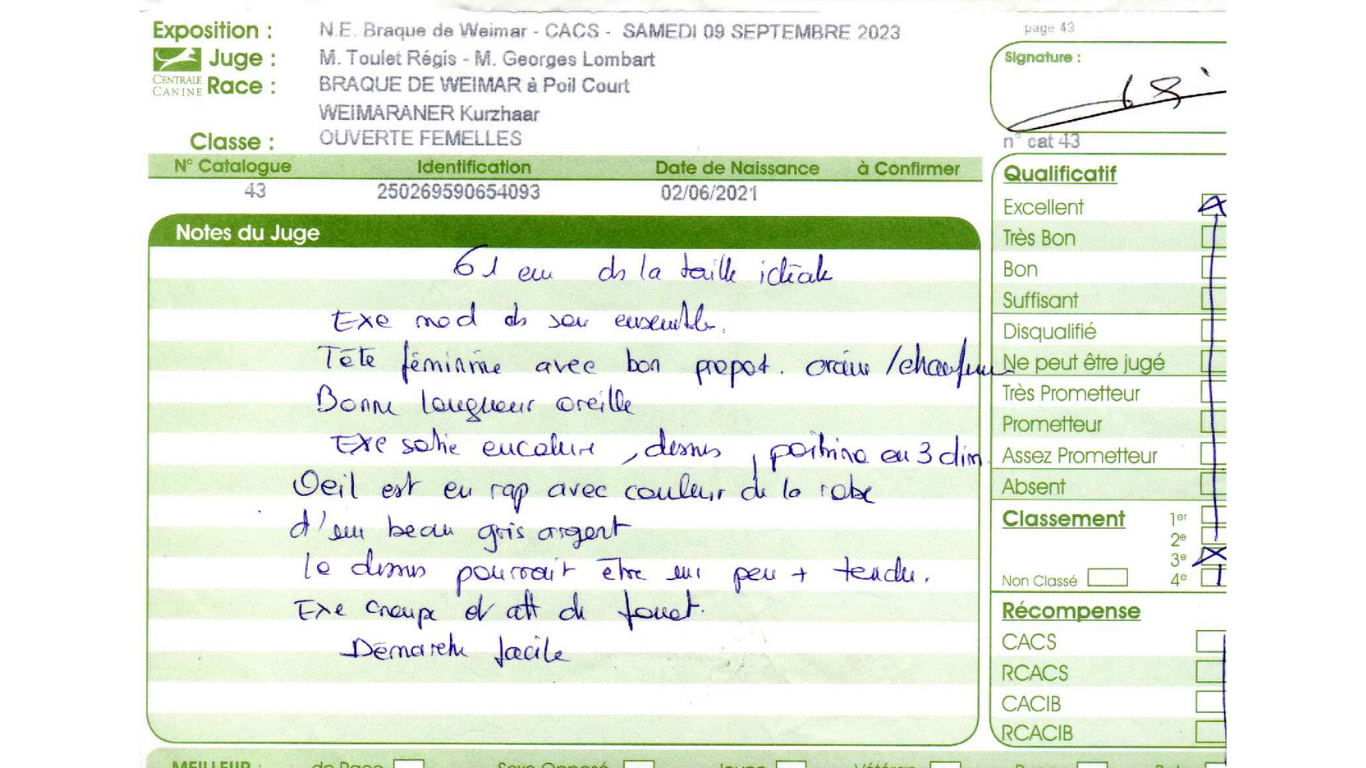 Exposition : N.E. Braque de Weimar - CACS - SAMEDI 09 SEPTEMBRE 2023
page 43
CENTRALE CANINE
Juge : M. Toulet Régis - M. Georges Lombart
Signature :
Race : BRAQUE DE WEIMAR à Poil Court
WEIMARANER Kurzhaar
Classe : OUVERTE FEMELLES
n° cat 43
N° Catalogue Identification Date de Naissance à Confirmer
43 250269590654093 02/06/2021
Notes du Juge
61 cm ds la taille idéale
Exe mod ds son ensemble.
Tête féminine avec bon propot. crâne / chanfrein
Bonne longueur oreille
Exe sortie encolure, dessus, poitrine en 3 dim
Oeil est en rap avec couleur de la robe
d'un beau gris argent
le dessus pourrait être un peu + tendu.
Exe croupe et att de fouet.
Démarche facile
Qualificatif
Excellent
Très Bon
Bon
Suffisant
Disqualifié
Ne peut être jugé
Très Prometteur
Prometteur
Assez Prometteur
Absent
Classement 1er
2e
3e
Non Classé 4e
Récompense
CACS
RCACS
CACIB
RCACIB
MEILLEUR : de Race Sexe Opposé Jeune Vétéran